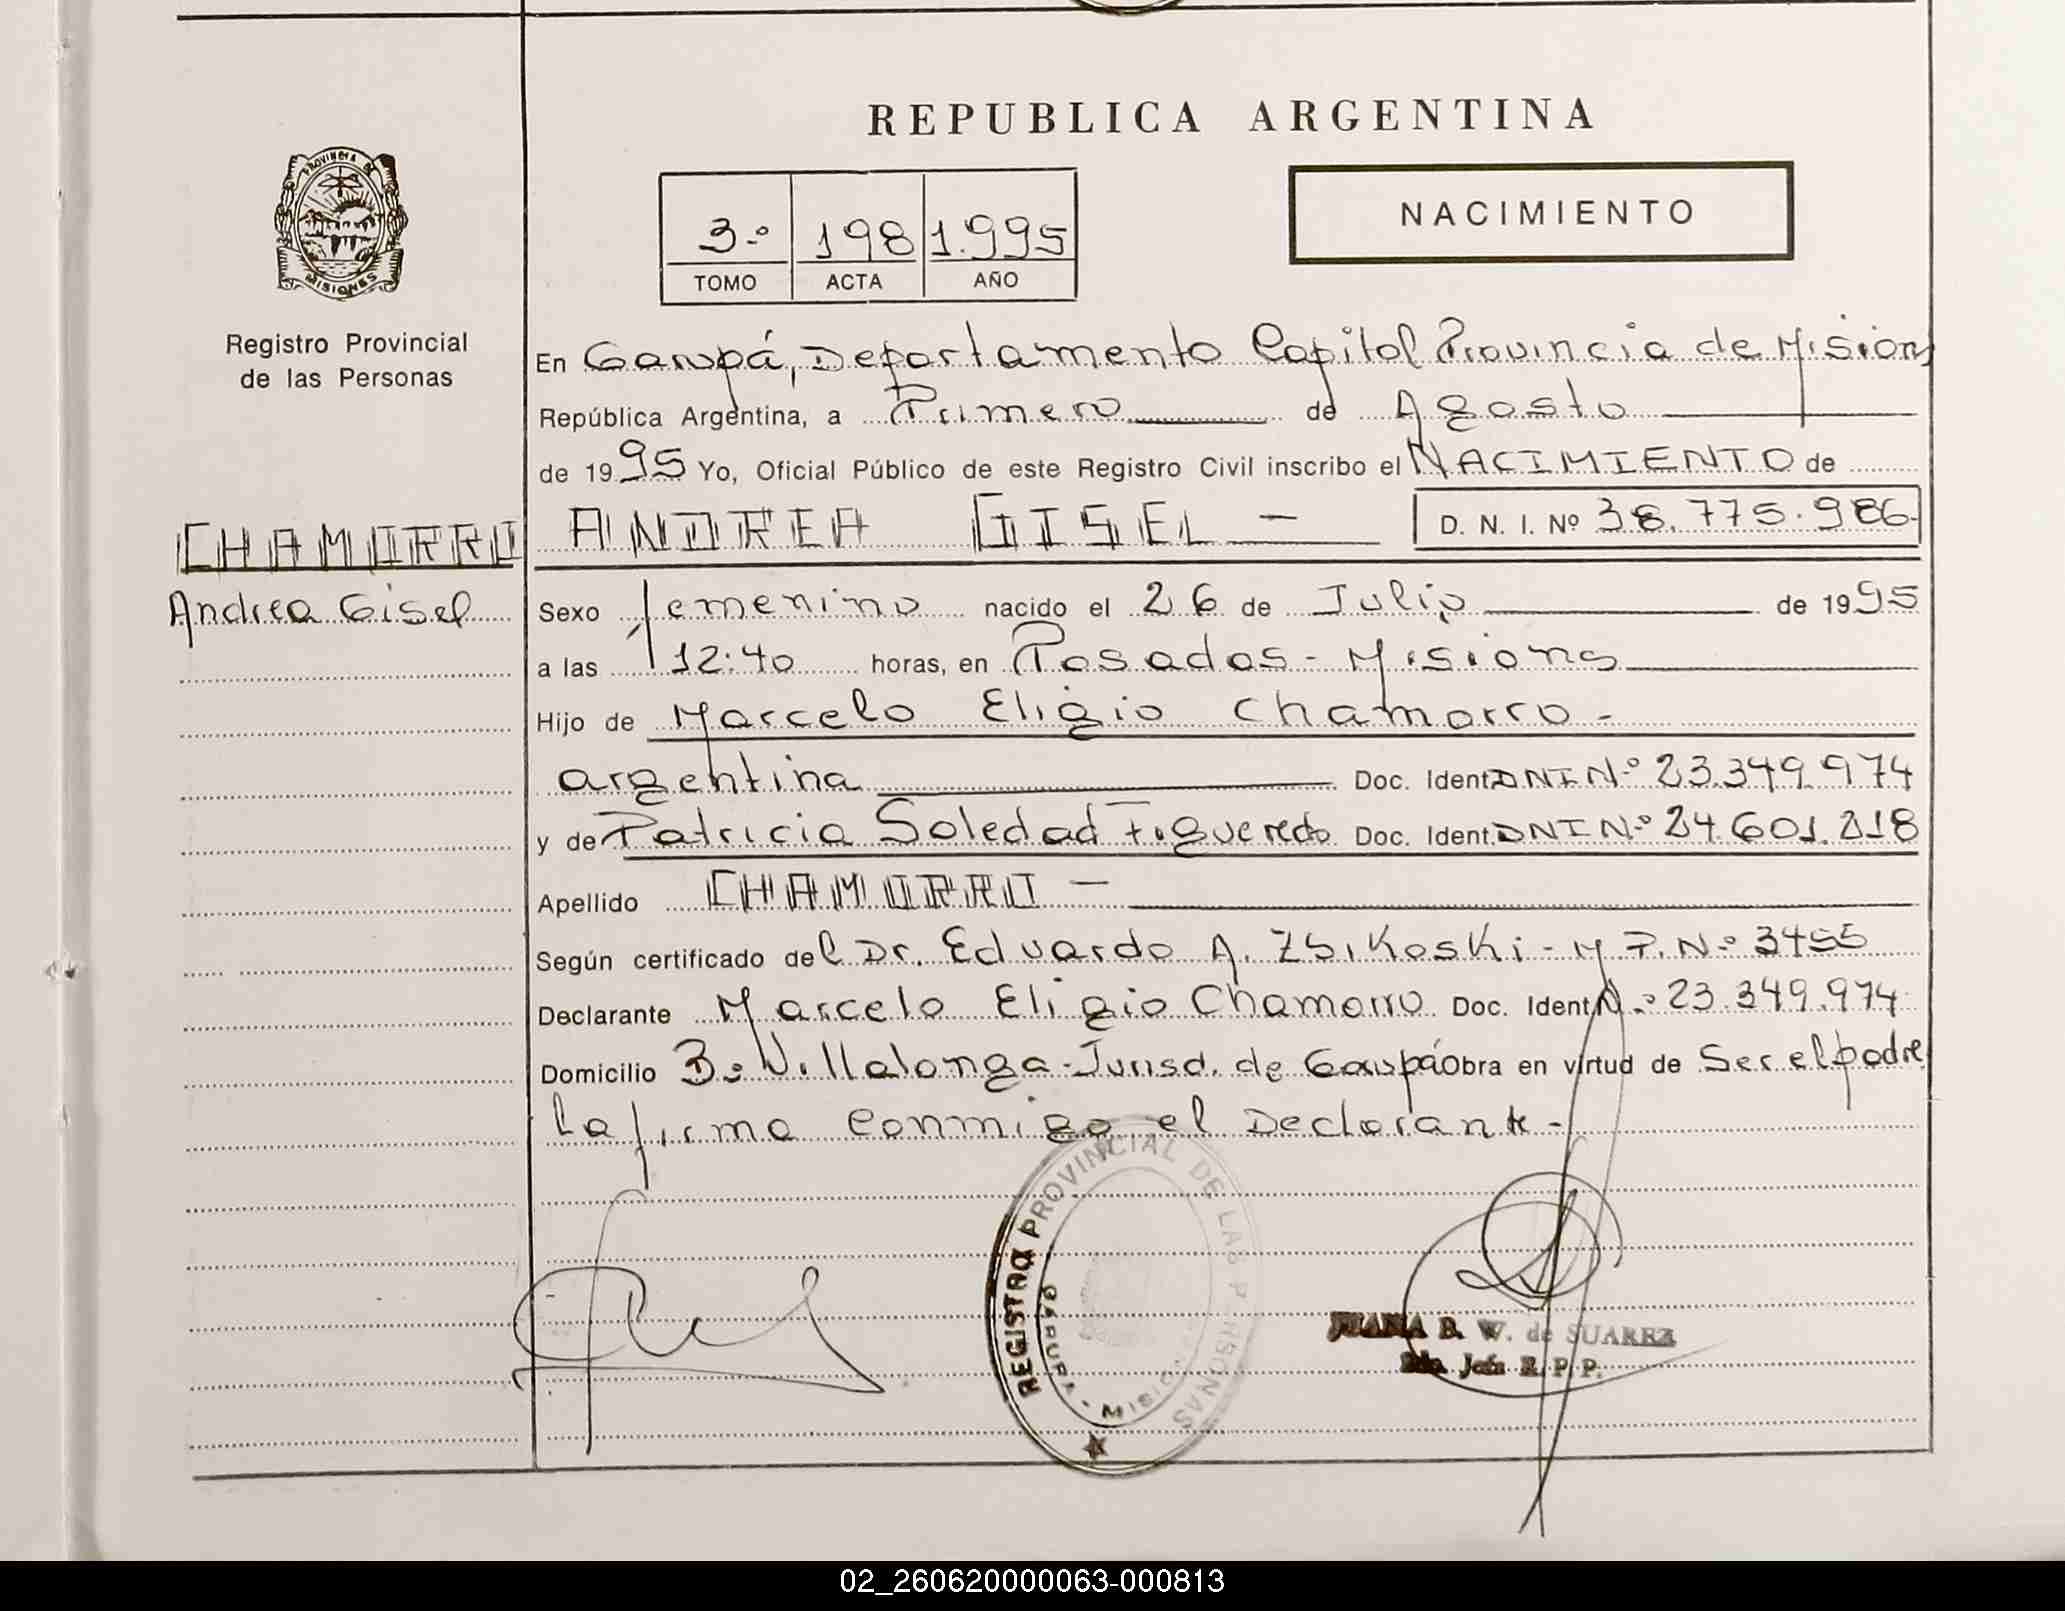 REPUBLICA ARGENTINA
PROVINCIA DE
MISIONES
Registro Provincial
de las Personas
3.º 198 1.995
TOMO ACTA AÑO
NACIMIENTO
En Garupá, Departamento Capital Provincia de Misiones
República Argentina, a Primero de Agosto
de 1995 Yo, Oficial Público de este Registro Civil inscribo el NACIMIENTO de
CHAMORRO
Andrea Gisel
ANDREA GISEL - D. N. I. Nº 38.775.986-
Sexo femenino nacido el 26 de Julio de 1995
a las 12:40 horas, en Posadas - Misiones
Hijo de Marcelo Eligio Chamorro -
argentina Doc. Ident. DNI N.º 23.349.974
y de Patricia Soledad Figueredo Doc. Ident. DNI N.º 24.601.218
Apellido CHAMORRO -
Según certificado del Dr. Eduardo A. Zsikoski - M.P.N.º 3455
Declarante Marcelo Eligio Chamorro Doc. Ident N.º 23.349.974
Domicilio B.º Villalonga - Jurisd. de Garupá Obra en virtud de Ser el padre
La firma Conmigo el Declarante -
REGISTRO PROVINCIAL DE LAS PERSONAS
GARUPA - MISIONES
JUANA B. W. de SUAREZ
Jefa R. P. P.
02_260620000063-000813